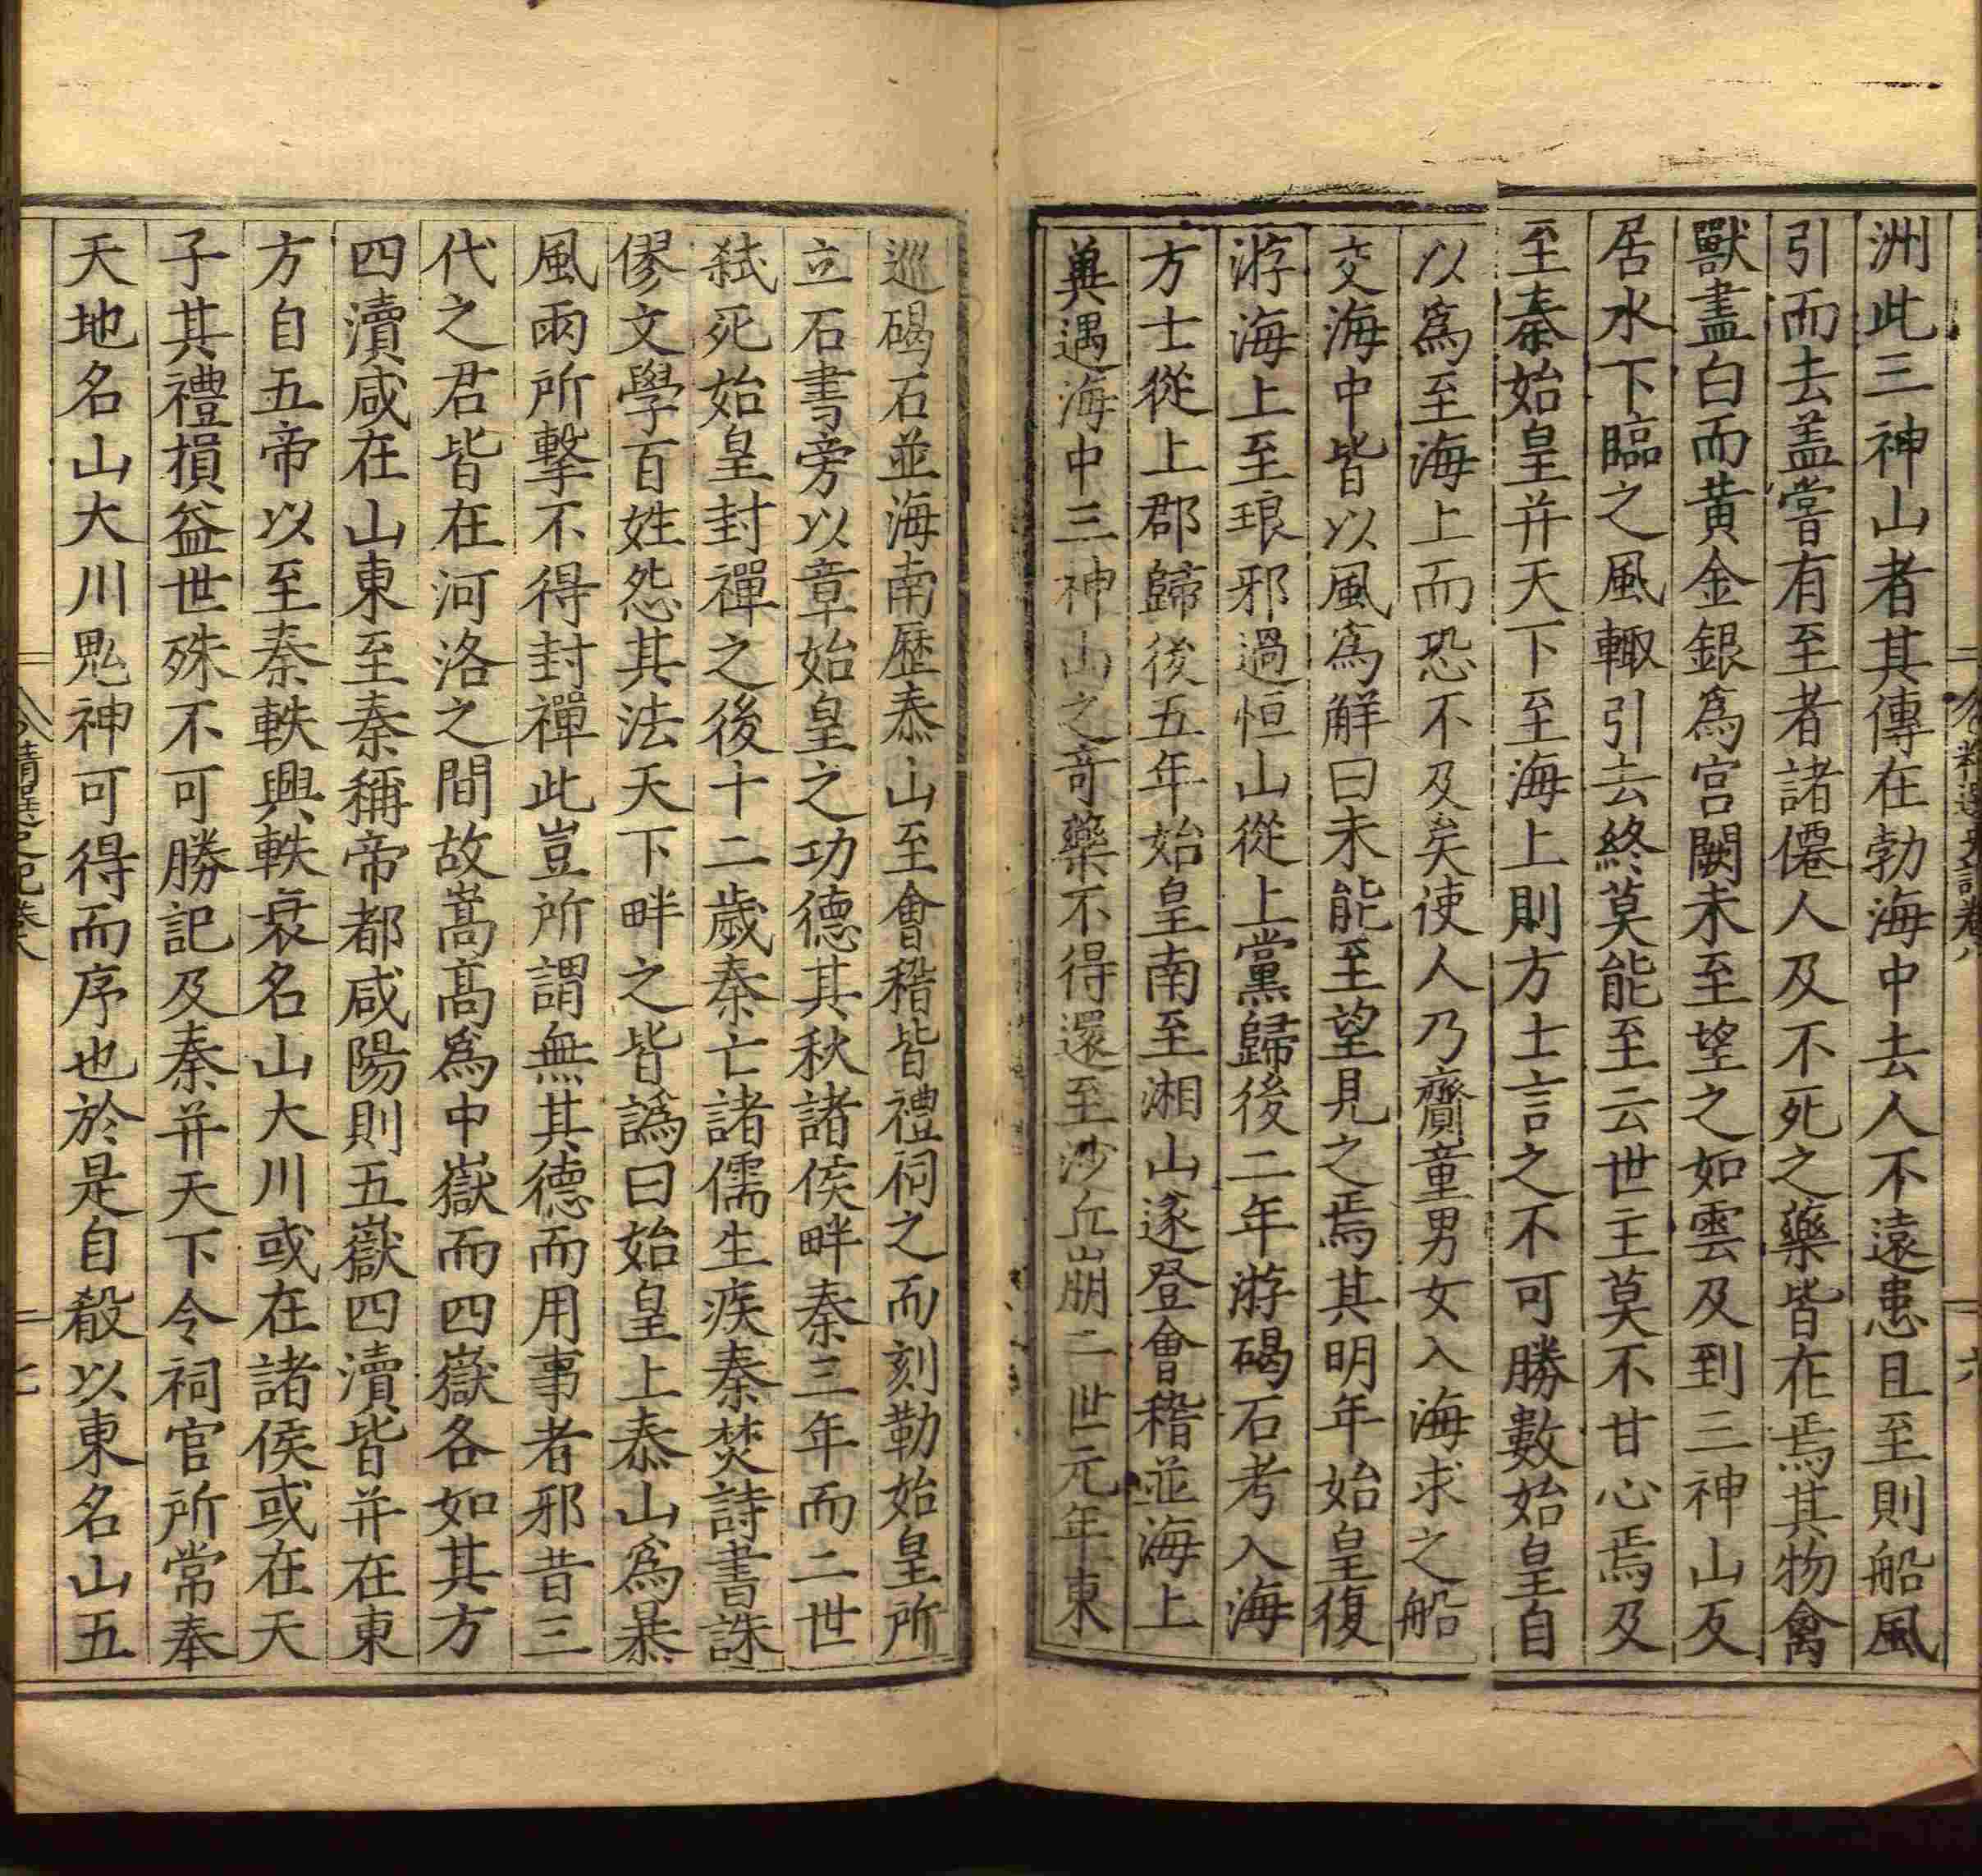 洲此三神山者其傳在勃海中去人不遠患且至則船風
引而去盖嘗有至者諸僊人及不死之藥皆在焉其物禽
獸盡白而黄金銀爲宫闕未至望之如雲及到三神山反
居水下臨之風輙引去終莫能至云世主莫不甘心焉及
至秦始皇并天下至海上則方士言之不可勝數始皇自
以爲至海上而恐不及矣使人乃齎童男女入海求之船
交海中皆以風爲解曰未能至望見之焉其明年始皇復
游海上至琅邪過恒山從上黨歸後二年游碣石考入海
方士從上郡歸後五年始皇南至湘山遂登會稽並海上
冀遇海中三神山之奇藥不得還至沙丘崩二世元年東
精選史記卷八
六
巡碣石並海南歷泰山至會稽皆禮祠之而刻勒始皇所
立石書旁以章始皇之功德其秋諸侯畔秦三年而二世
弑死始皇封禪之後十二歲秦亡諸儒生疾秦焚詩書誅
僇文學百姓怨其法天下畔之皆譌曰始皇上泰山爲暴
風雨所擊不得封禪此豈所謂無其德而用事者邪昔三
代之君皆在河洛之間故嵩高爲中嶽而四嶽各如其方
四瀆咸在山東至秦稱帝都咸陽則五嶽四瀆皆并在東
方自五帝以至秦軼興軼衰名山大川或在諸侯或在天
子其禮損益世殊不可勝記及秦并天下令祠官所常奉
天地名山大川鬼神可得而序也於是自殽以東名山五
精選史記卷八
七